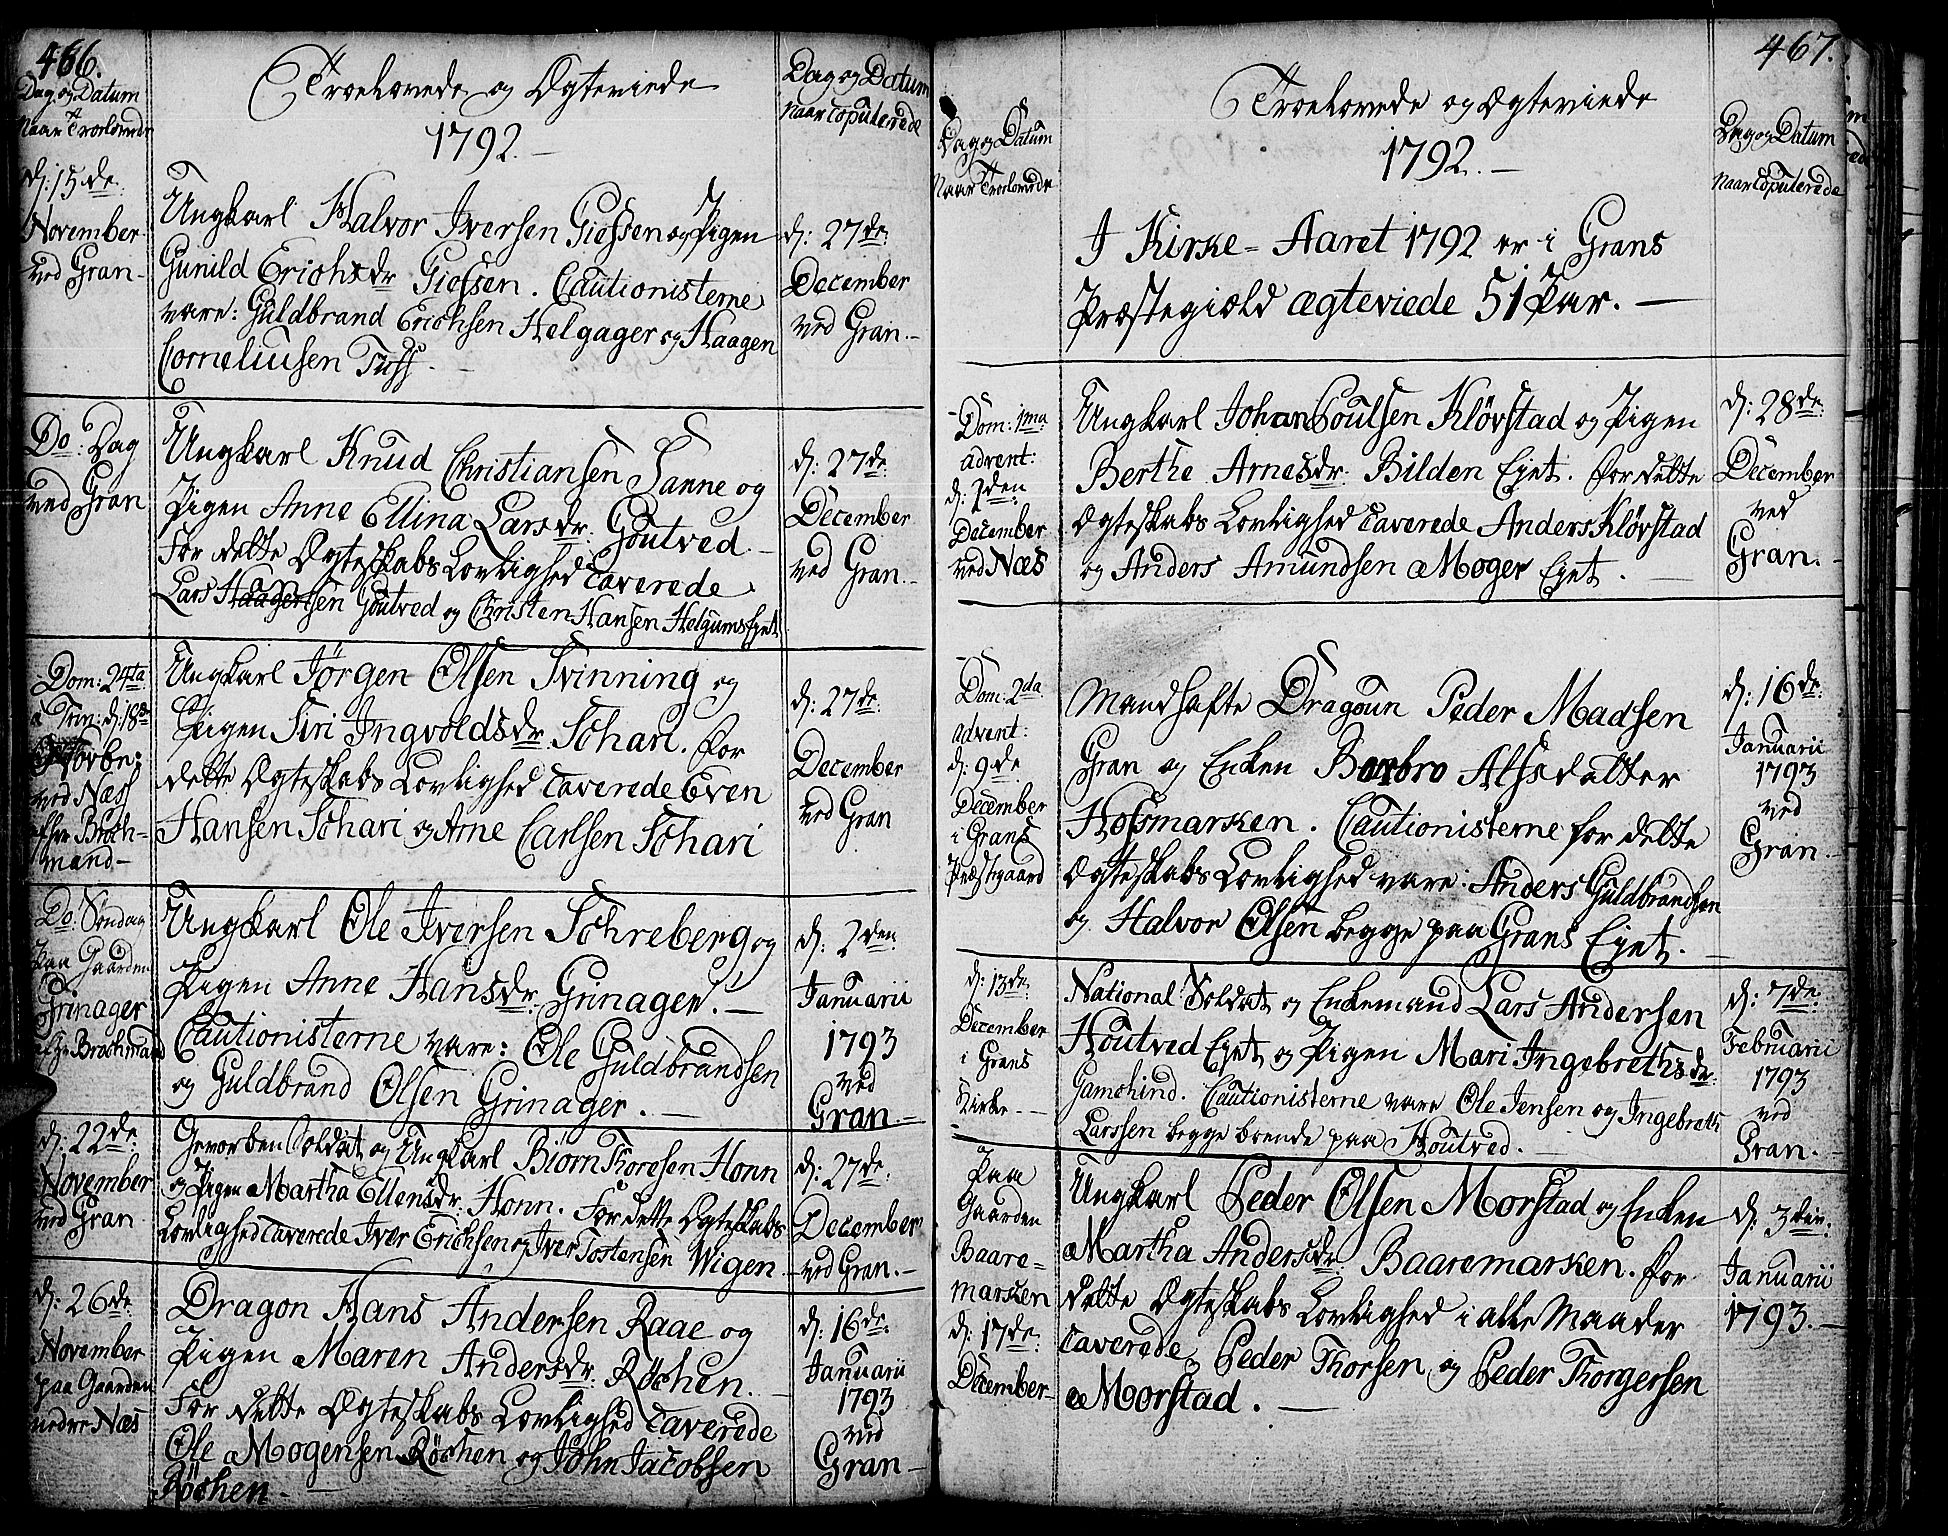 466.
Dag og Datum
Naar Troelovede
Troelovede og Ægteviede
1792.
Dag og Datum
Naar Copulerede
d: 15de
November
ved Gran
Ungkarl Halvor Iversen Giefsen og Pigen
Gunild Erichsdr Giefsen. Cautionisterne
vare: Guldbrand Erichsen Helgager og Haagen
Corneliusen Tuff.
d: 27de
December
ved Gran.
Do: Dag
ved Gran
Ungkarl Knud Christiansen Sanne og
Pigen Anne Ellina Larsdr. Goutved.
For dette Ægteskabs Lovlighed Caverede
Lars Haagensen Goutved og Christen Hansen Helgums Ejet
d: 27de
December
ved Gran.
Dom: 24ta
a Trin: d: 18de
Novbr:
ved Næs
af hr Broch-
mand
Ungkarl Jörgen Olsen Svinning og
Pigen Siri Ingvoldsdr Schari. For
dette Ægteskabs Lovlighed Caverede Even
Hansen Schari og Arne Carlsen Schari
d: 27de
December
ved Gran
Do: Söndag
paa Gaarden
Grinager
af hr Brochmand
Ungkarl Ole Iversen Schreberg og
Pigen Anne Hansdr. Grinager.
Cautionisterne vare: Ole Guldbrandsen
og Guldbrand Olsen Grinager.
d: 2den
Januarii
1793
ved
Gran.
d: 22de
November
ved Gran
Gevorben Soldat og Ungkarl Biörn Thoresen Honn
og Pigen Martha Ellensdr. Honn. For dette Ægteskabs
Lovlighed Caverede Iver Erichsen og Iver Tostensen Wigen
d: 27de
December
ved Gran.
d: 26de
November
paa Gaarden
nedre Næs
Dragon Hans Andersen Raae og
Pigen Maren Andersdr. Röchen.
For dette Ægteskabs Lovlighed Caverede
Ole Mogensen Röchen og John Jacobsen
Röchen
d: 16de
Januarii
1793
ved
Gran
467.
Dag og Datum
Naar Troelovede
Troelovede og Ægteviede
1792.
Dag og Datum
Naar Copulerede
I Kirke-Aaret 1792 er i Grans
Præstegiæld ægteviede 51 Par.
Dom: 1ma
advent:
d: 2den
December
ved Næs
Ungkarl Johan Poulsen Klövstad og Pigen
Berthe Arnesdr. Bilden Ejet. For dette
Ægteskabs Lovlighed Caverede Anders Klövstad
og Anders Amundsen Moger Ejet.
d: 28de
December
ved
Gran.
Dom: 2da
advent:
d: 9de
December
i Grans
Præstgaard
Mandhafte Dragoun Peder Madsen
Gran og Enken Barbro Alfsdatter
Hofsmarken. Cautionisterne for dette
Ægteskabs Lovlighed vare: Anders Guldbrandsen
og Halvor Olsen begge paa Grans Ejet.
d: 16de
Januarii
1793
ved
Gran.
d: 13de
December
i Grans
Kirke
National Soldat og Enkemand Lars Andersen
Houtved Ejet og Pigen Mari Ingebrethsdr.
Gamchind. Cautionisterne vare Ole Jensen og Ingebreth
Larssen begge boende paa Houtved.
d: 7de
Februarii
1793
ved
Gran.
Paa
Gaarden
Baare-
marken
d: 17de
December
Ungkarl Peder Olsen Morstad og Enken
Martha Andersdr. Baaremarken. For
dette Ægteskabs Lovlighed i alle Maader
Caverede Peder Thorsen og Peder Thorgersen
Morstad.
d: 3die
Januarii
1793.